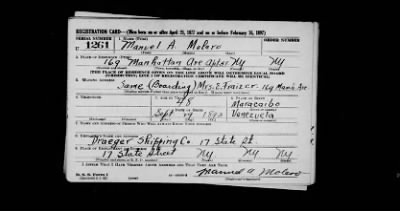 REGISTRATION CARD—(Men born on or after April 28, 1877 and on or before February 16, 1897)
SERIAL NUMBER
U 1261
1. NAME (Print)
Manuel A Molero
2. PLACE OF RESIDENCE (Print)
169 Manhattan Ave NY NY
[THE PLACE OF RESIDENCE GIVEN ON THE LINE ABOVE WILL DETERMINE LOCAL BOARD JURISDICTION; LINE 2 OF REGISTRATION CERTIFICATE WILL BE IDENTICAL]
3. MAILING ADDRESS
Same (Boarding) Mrs. E. Frazer 169 Manh Ave
4. TELEPHONE
5. AGE IN YEARS
48
DATE OF BIRTH
Sept
6. PLACE OF BIRTH
Maracaibo
Venezuela
7. NAME AND ADDRESS OF PERSON WHO WILL ALWAYS KNOW YOUR ADDRESS
8. EMPLOYER'S NAME AND ADDRESS
Draeger Shipping Co 17 State St.
9. PLACE OF EMPLOYMENT OR BUSINESS
17 State Street NY NY
I AFFIRM THAT I HAVE VERIFIED ABOVE ANSWERS AND THAT THEY ARE TRUE.
D. S. S. Form 1
Manuel A Molero